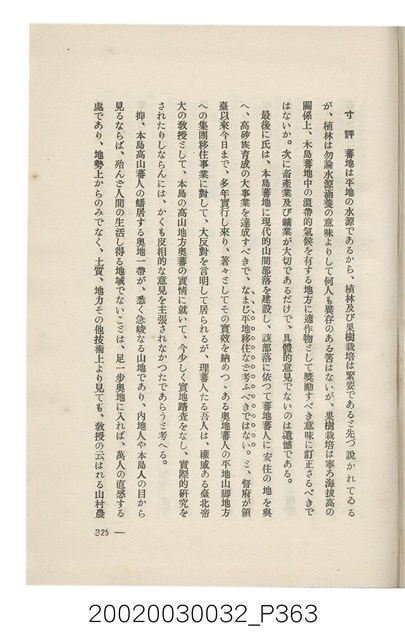 寸評 蕃地は平地の水源であるから、植林及び果樹栽培は緊要であると先づ說かれてゐる
が、植林は勿論水源涵養の意味よりして何人も異存のある筈はないが、果樹栽培は寧ろ海拔高の
關係上、本島蕃地中の溫帶的氣候を有する地方に適作物として奬勵すべき意味に訂正さるべきで
はないか。次に畜產業及び鑛業が大切であるだけで、具體的意見でないのは遺憾である。
最後に氏は、本島蕃地に現代的山間部落を建設し、該部落に依つて蕃地蕃人に安住の地を與
へ、高砂族育成の大事業を達成すべきで、なまじ平地移住など考ふべきではない。と、督府が領
臺以來今日まで、多年實行し來り、著々としてその實效を納めつゝある奧地蕃人の平地山脚地方
への集團移住事業に對して、大反對を言明して居られるが、理蕃人たる吾人は、權威ある臺北帝
大の敎授として、本島の高山地方奧蕃の實情に就いて、今少しく實地踏査をなし、實際的硏究を
されたりしならんには、かくも皮相的な意見を主張されなかつたであらうと考へる。
抑、本島高山蕃人の蟠居する奧地一帶が、悉く急峻なる山地であり、內地人や本島人の目から
見るならば、殆んど人間の生活し得る地域でないことは、足一步奧地に入れば、萬人の直感する
處であり、地勢上からのみでなく、土質、地力その他技術上より見ても、敎授の云はれる山村農
325 —
20020030032_P363